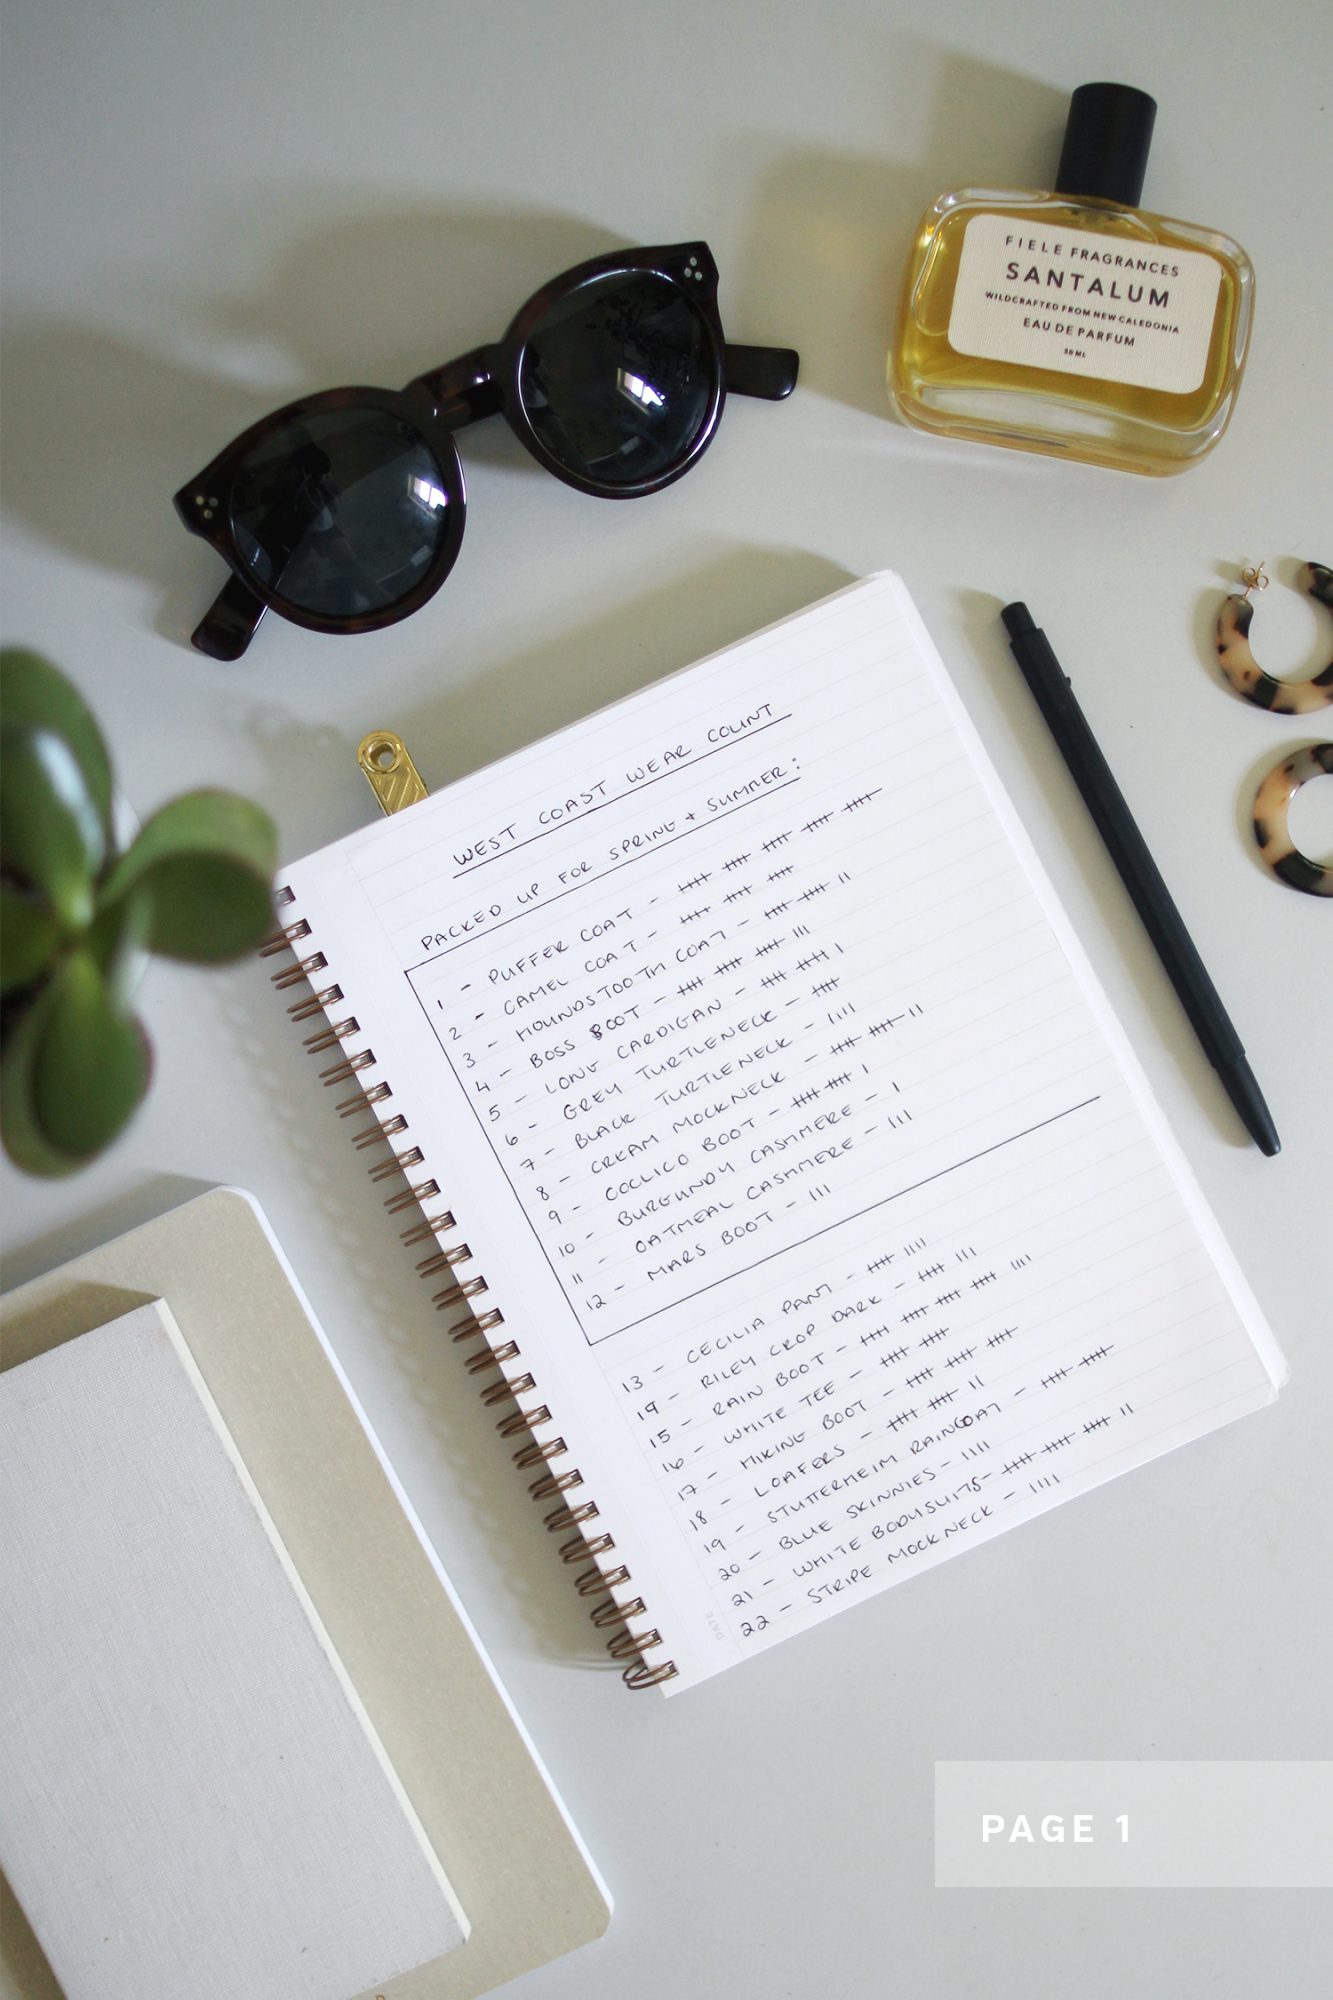 FIELE FRAGRANCES
SANTALUM
WILDCRAFTED FROM NEW CALEDONIA
EAU DE PARFUM
50 ML
WEST COAST WEAR COUNT
PACKED UP FOR SPRING + SUMMER:
1 - PUFFER COAT - 卌 卌 卌 卌 卌
2 - CAMEL COAT - 卌 卌 卌
3 - HOUNDSTOOTH COAT - 卌 卌 II
4 - BOSS BOOT - 卌 卌 卌 III
5 - LONG CARDIGAN - 卌 卌 I
6 - GREY TURTLENECK - 卌
7 - BLACK TURTLENECK - IIII
8 - CREAM MOCKNECK - 卌 卌 II
9 - COCLICO BOOT - 卌 卌 I
10 - BURGUNDY CASHMERE - I
11 - OATMEAL CASHMERE - III
12 - MARS BOOT - III
13 - CECILIA PANT - 卌 IIII
14 - RILEY CROP DARK - 卌 III
15 - RAIN BOOT - 卌 卌 卌 卌 IIII
16 - WHITE TEE - 卌 卌
17 - HIKING BOOT - 卌 卌 卌
18 - LOAFERS - 卌 卌 II
19 - STUTTERHEIM RAINCOAT - 卌 卌
20 - BLUE SKINNIES - IIII
21 - WHITE BODYSUITS - 卌 卌 卌 II
22 - STRIPE MOCKNECK - IIII
DATE
PAGE 1